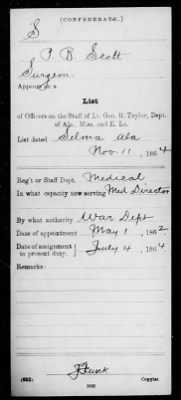 (CONFEDERATE.)
S
P. B. Scott
Surgeon
Appears on a
List
of Officers on the Staff of Lt. Gen. R. Taylor, Dept.
of Ala., Miss. and E. La.
List dated Selma Ala
Nov 11, 1864
Reg't or Staff Dept. Medical
In what capacity now serving Med Director
By what authority War Dept
Date of appointment May 1, 1862
Date of assignment
to present duty. July 4, 1864
Remarks:
J Funk
Copyist.